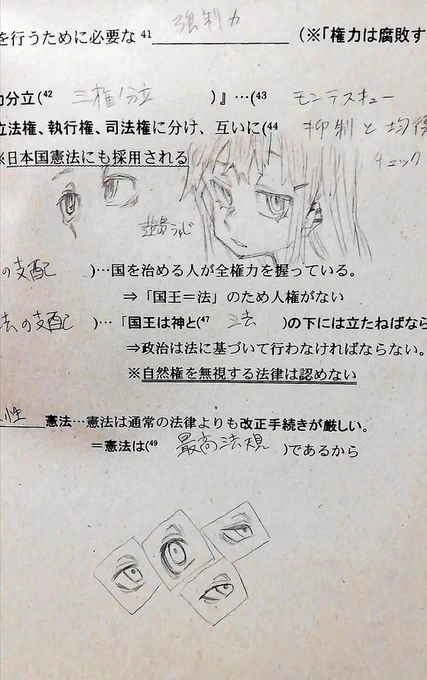 を行うために必要な 41 強制力 (※「権力は腐敗す
力分立(42 三権分立 )』…(43 モンテスキュー
立法権、執行権、司法権に分け、互いに(44 抑制と均衡
※日本国憲法にも採用される チェック
の支配 )…国を治める人が全権力を握っている。
⇒「国王=法」のため人権がない
法の支配 )…「国王は神と(47 法 )の下には立たねばなら
⇒政治は法に基づいて行わなければならない。
※自然権を無視する法律は認めない
性 憲法…憲法は通常の法律よりも改正手続きが厳しい。
=憲法は(49 最高法規 )であるから